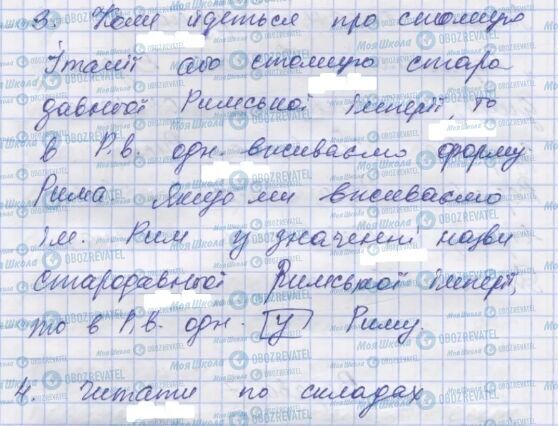 3. Коли йдеться про столицю
Італії або столицю старо
давньої Римської Імперії, то
в Р.в. одн. вживаємо форму
Рима. Якщо ми вживаємо
ім. Рим у значенні назви
стародавньої Римської імперії,
то в Р.В. одн. у Риму.
4. Читати по складах